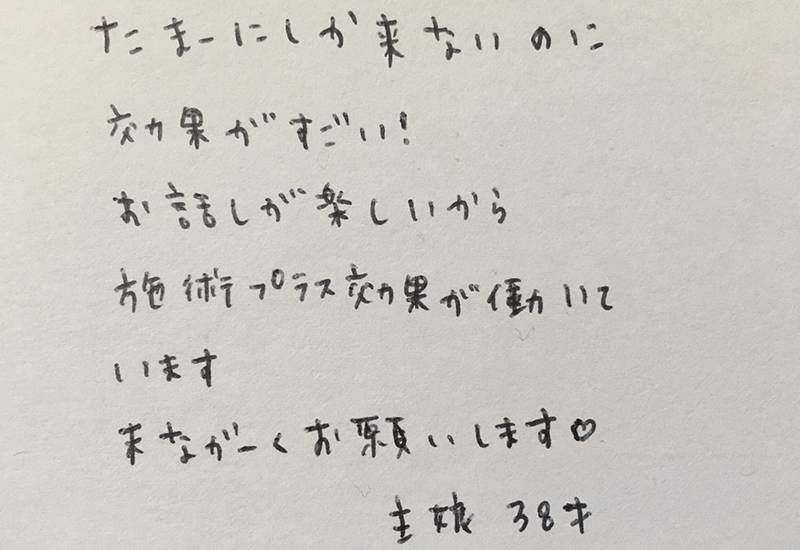 たまーにしか来ないのに
効果がすごい!
お話しが楽しいから
施術プラス効果が働いて
います
末ながーくお願いします♡
主娘 38才